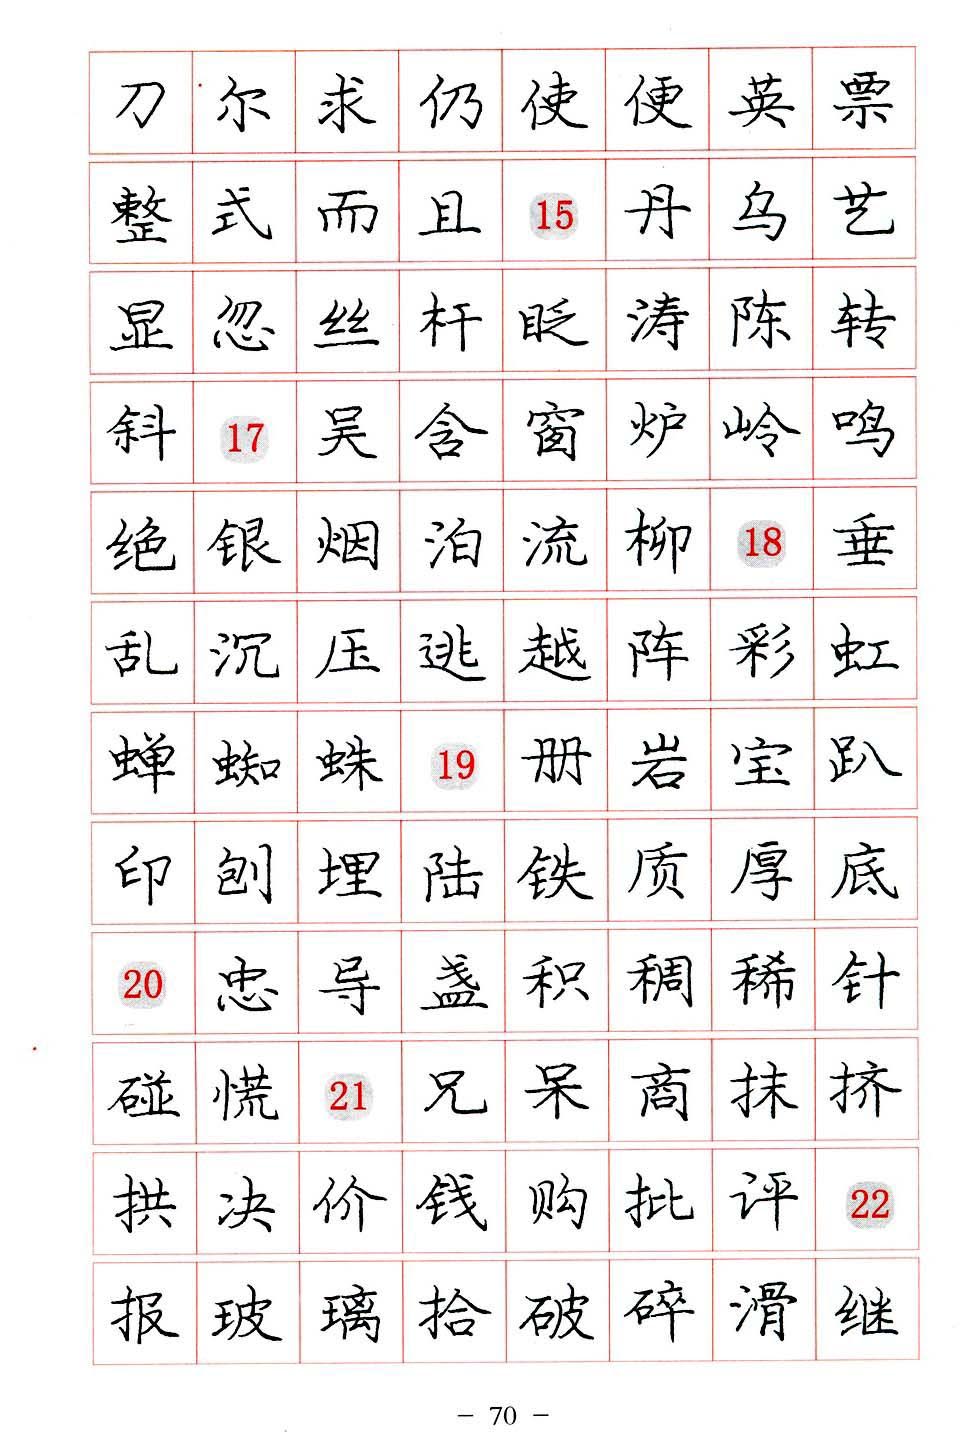 刀 尔 求 仍 使 便 英 票
整 式 而 且 15 丹 乌 艺
显 忽 丝 杆 眨 涛 陈 转
斜 17 吴 含 窗 炉 岭 鸣
绝 银 烟 泊 流 柳 18 垂
乱 沉 压 逃 越 阵 彩 虹
蝉 蜘 蛛 19 册 岩 宝 趴
印 刨 埋 陆 铁 质 厚 底
20 忠 导 盏 积 稠 稀 针
碰 慌 21 兄 呆 商 抹 挤
拱 决 价 钱 购 批 评 22
报 玻 璃 拾 破 碎 滑 继
– 70 –